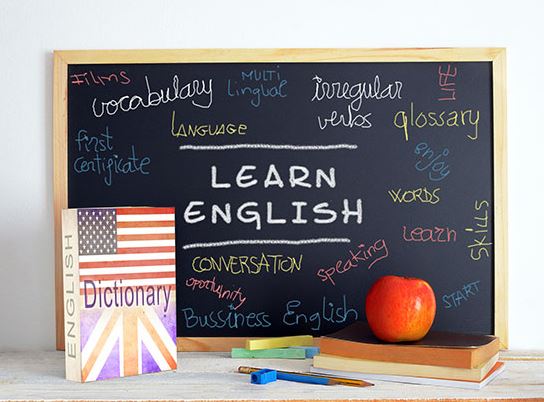 FILMS
vocabulary
MULTI
lingual
irregular
verbs
LIFE
glossary
LANGUAGE
first
certificate
enjoy
LEARN
ENGLISH
WORDS
learn
SKILLS
CONVERSATION
speaking
oportunity
START
Bussiness English
ENGLISH
Dictionary